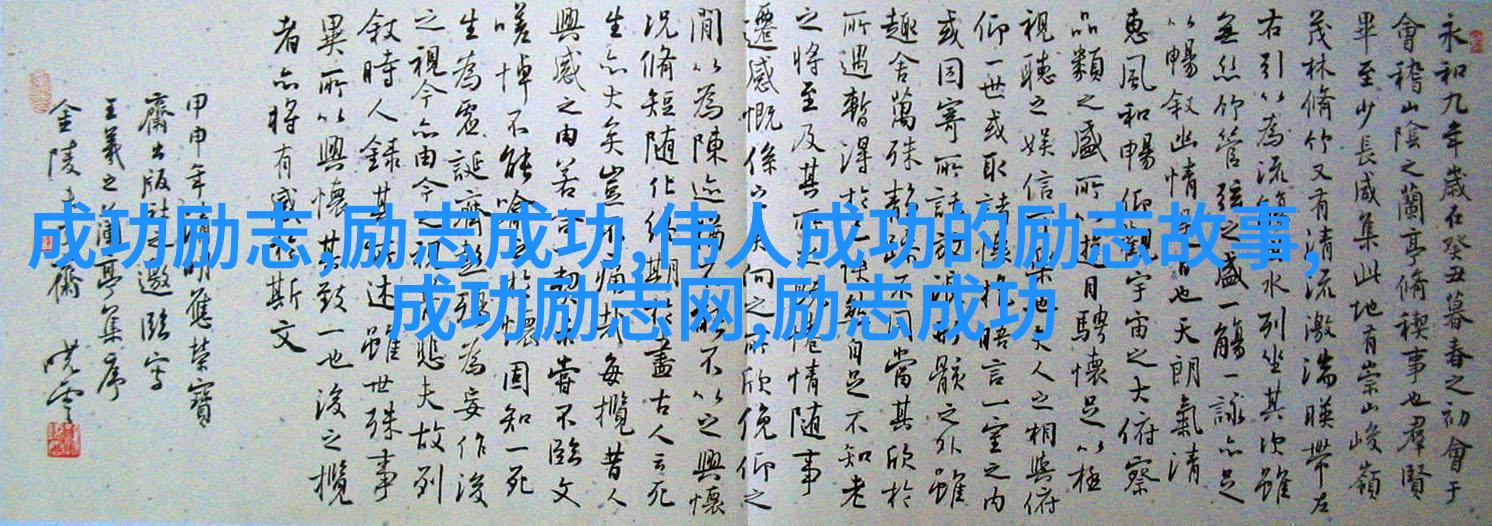 永和九年歲在癸丑暮春之初會于
會稽山陰之蘭亭脩稧事也羣賢
畢至少長咸集此地有崇山峻嶺
茂林脩竹又有清流激湍暎帶左
右引以為流觴水列坐其次雖
無絲竹管弦之盛一觴一詠亦足
以暢敘幽情是日也天朗氣清
惠風和暢仰觀宇宙之大俯察
品類之盛所以遊目騁懷足以極
視聽之娛信可樂也夫人之相與俯
仰一世或取諸懷抱晤言一室之內
或因寄所託放浪形骸之外雖
趣舍萬殊靜躁不同當其欣於
所遇暫得於己快然自足不知老
之將至及其所之既惓情随事
遷感慨係之矣向之所欣俛仰之
間以為陳迹猶不能不以之興懷
況脩短随化終期於盡古人云死
生亦大矣豈不痛哉每攬昔人
興感之由若合一契未嘗不臨文
嗟悼不能喻之於懷固知一死
生為虛誕齊彭殤為妄作後
之視今亦由今之視昔悲夫故列
敘時人錄其所述雖世殊事
異所以興懷其致一也後之攬
者亦將有感於斯文
甲申年清明應榮寶
齋出版社之邀臨寫
王羲之蘭亭集序
金陵齋曉雲
成功励志,励志成功,伟人成功的励志故事,
成功励志网,励志成功